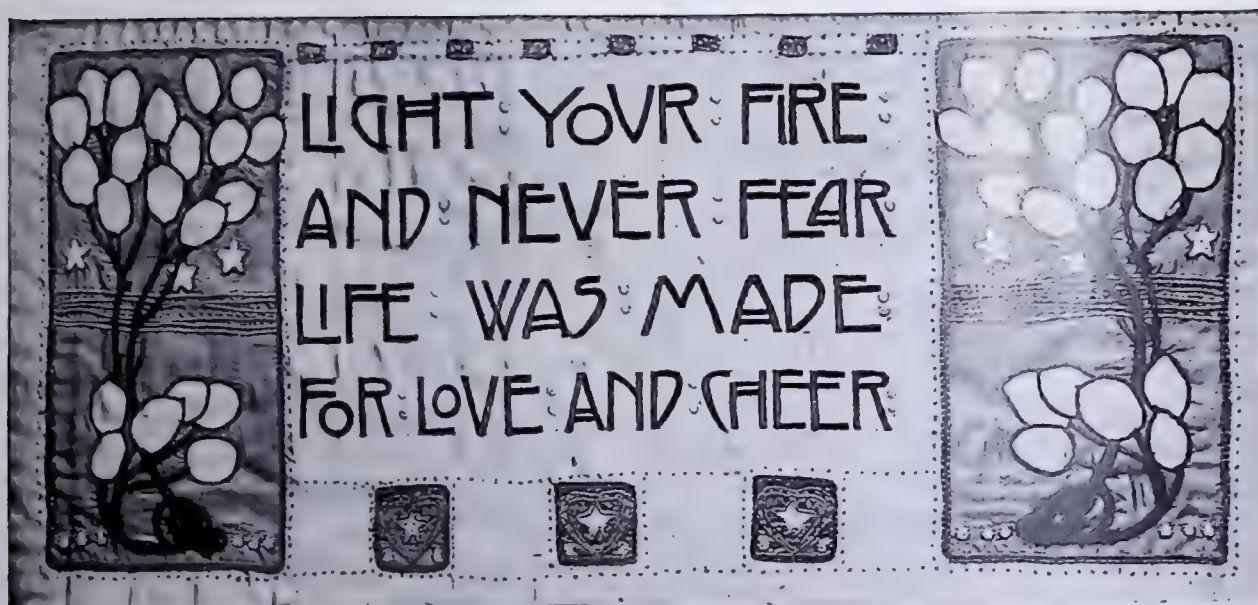 LIGHT : YOUR : FIRE :
AND : NEVER : FEAR :
LIFE : WAS : MADE :
FOR : LOVE : AND : CHEER :